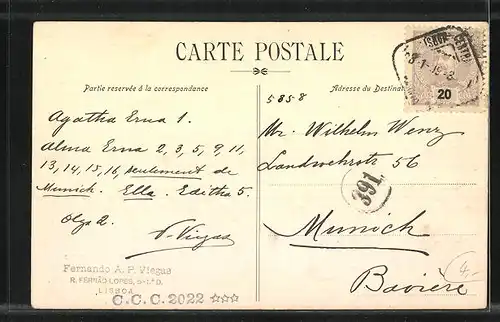 CARTE POSTALE
Partie reservée à la correspondance
Agatha Erna 1.
Alma Erna 2, 3, 5, 9, 11,
13, 14, 15, 16, seulement de
Munich. Ella. Editha 5.
Olga 2.
V. Viegas
Fernando A. P. Viegas
R. FERNÃO LOPES,
LISBOA
C.C.C. 2022 ☆☆☆
Adresse du Destinat
20
5858
Mr. Wilhelm Wenz
Landwehrstr 56
391
Munich
Bavière
4.-